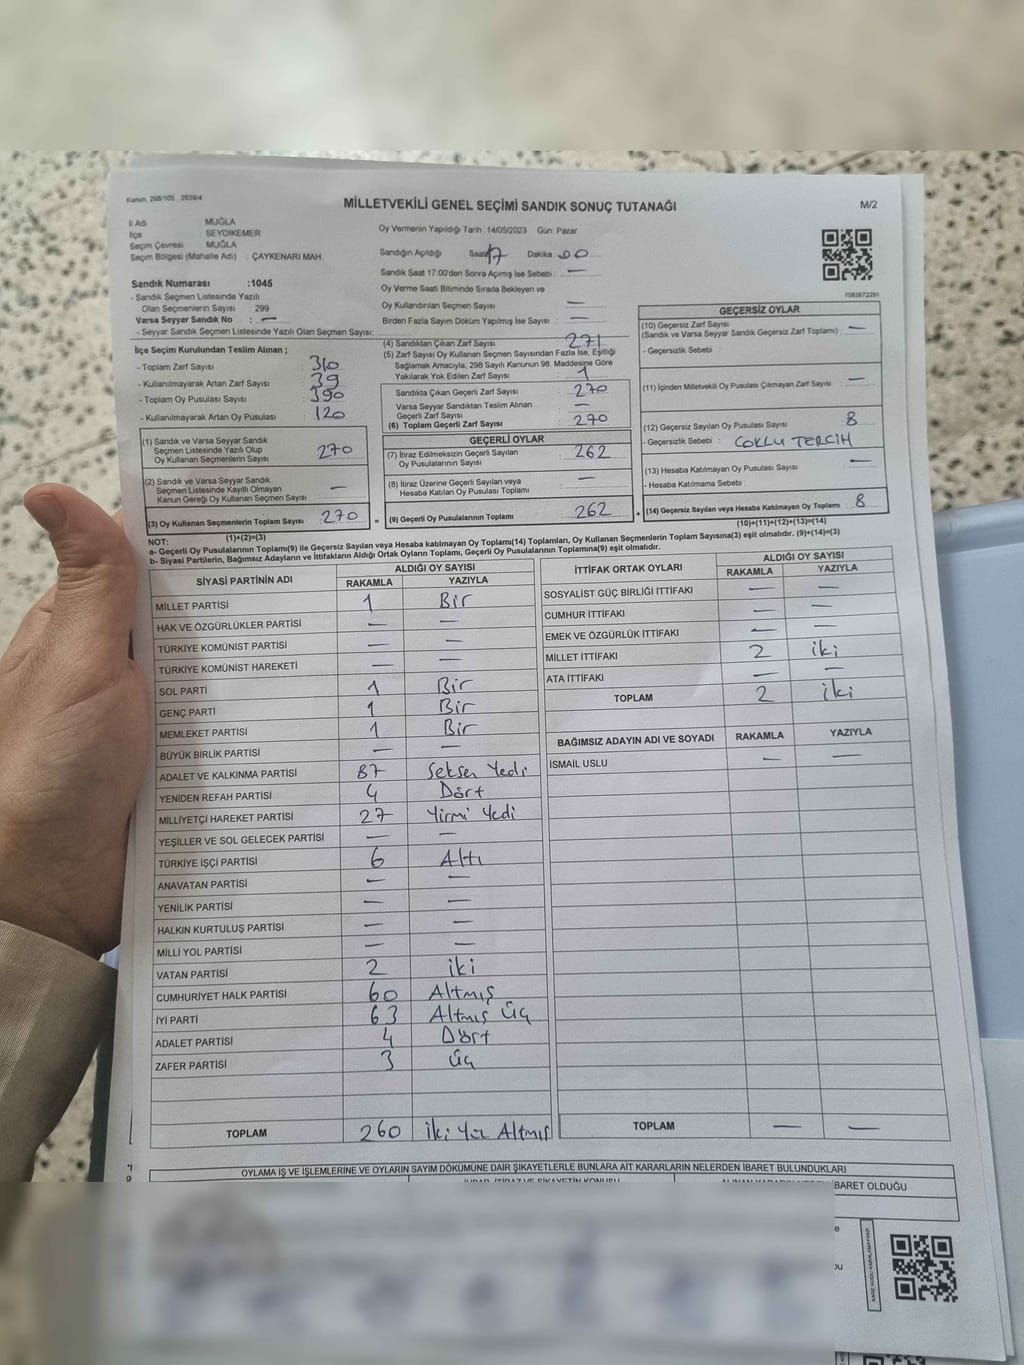 Kanun: 298/105 , 2839/4
MİLLETVEKİLİ GENEL SEÇİMİ SANDIK SONUÇ TUTANAĞI
M/2
İl Adı : MUĞLA
İlçe : SEYDİKEMER
Seçim Çevresi : MUĞLA
Seçim Bölgesi (Mahalle Adı) : ÇAYKENARI MAH.
Sandık Numarası :1045
- Sandık Seçmen Listesinde Yazılı
Olan Seçmenlerin Sayısı : 299
Varsa Seyyar Sandık No : —
- Seyyar Sandık Seçmen Listesinde Yazılı Olan Seçmen Sayısı:
Oy Vermenin Yapıldığı Tarih : 14/05/2023 Gün: Pazar
Sandığın Açıldığı Saat 17 Dakika 00
Sandık Saat 17:00'den Sonra Açımış İse Sebebi : —
Oy Verme Saati Bitiminde Sırada Bekleyen ve
Oy Kullandırılan Seçmen Sayısı : —
Birden Fazla Sayım Döküm Yapılmış İse Sayısı : —
İlçe Seçim Kurulundan Teslim Alınan ;
- Toplam Zarf Sayısı : 310
- Kullanılmayarak Artan Zarf Sayısı : 39
- Toplam Oy Pusulası Sayısı : 390
- Kullanılmayarak Artan Oy Pusulası : 120
(1) Sandık ve Varsa Seyyar Sandık
Seçmen Listesinde Yazılı Olup
Oy Kullanan Seçmenlerin Sayısı 270
(2) Sandık ve Varsa Seyyar Sandık
Seçmen Listesinde Kayıtlı Olmayan
Kanun Gereği Oy Kullanan Seçmen Sayısı —
(3) Oy Kullanan Seçmenlerin Toplam Sayısı 270
(1)+(2)=(3)
(4) Sandıktan Çıkan Zarf Sayısı : 271
(5) Zarf Sayısı Oy Kullanan Seçmen Sayısından Fazla İse, Eşitliği
Sağlamak Amacıyla, 298 Sayılı Kanunun 98. Maddesine Göre
Yakılarak Yok Edilen Zarf Sayısı : 1
Sandıkta Çıkan Geçerli Zarf Sayısı : 270
Varsa Seyyar Sandıktan Teslim Alınan
Geçerli Zarf Sayısı : —
(6) Toplam Geçerli Zarf Sayısı : 270
GEÇERLİ OYLAR
(7) İtiraz Edilmeksizin Geçerli Sayılan
Oy Pusulalarının Sayısı : 262
(8) İtiraz Üzerine Geçerli Sayılan veya
Hesaba Katılan Oy Pusulası Toplamı : —
= (9) Geçerli Oy Pusulalarının Toplamı : 262
GEÇERSİZ OYLAR
(10) Geçersiz Zarf Sayısı : —
(Sandık ve Varsa Seyyar Sandık Geçersiz Zarf Toplamı)
- Geçersizlik Sebebi :
(11) İçinden Milletvekili Oy Pusulası Çıkmayan Zarf Sayısı : —
(12) Geçersiz Sayılan Oy Pusulası Sayısı : 8
- Geçersizlik Sebebi : COKLU TERCİH
(13) Hesaba Katılmayan Oy Pusulası Sayısı : —
- Hesaba Katılmama Sebebi :
+ (14) Geçersiz Sayılan veya Hesaba Katılmayan Oy Toplamı : 8
(10)+(11)+(12)+(13)=(14)
NOT:
a- Geçerli Oy Pusulalarının Toplamı(9) ile Geçersiz Sayılan veya Hesaba katılmayan Oy Toplamı(14) Toplamları, Oy Kullanan Seçmenlerin Toplam Sayısına(3) eşit olmalıdır. (9)+(14)=(3)
b- Siyasi Partilerin, Bağımsız Adayların ve İttifakların Aldığı Ortak Oyların Toplamı, Geçerli Oy Pusulalarının Toplamına(9) eşit olmalıdır.
SİYASİ PARTİNİN ADI
ALDIĞI OY SAYISI
RAKAMLA YAZIYLA
MİLLET PARTİSİ 1 Bir
HAK VE ÖZGÜRLÜKLER PARTİSİ — —
TÜRKİYE KOMÜNİST PARTİSİ — —
TÜRKİYE KOMÜNİST HAREKETİ — —
SOL PARTİ 1 Bir
GENÇ PARTİ 1 Bir
MEMLEKET PARTİSİ 1 Bir
BÜYÜK BİRLİK PARTİSİ — —
ADALET VE KALKINMA PARTİSİ 87 Seksen Yedi
YENİDEN REFAH PARTİSİ 4 Dört
MİLLİYETÇİ HAREKET PARTİSİ 27 Yirmi Yedi
YEŞİLLER VE SOL GELECEK PARTİSİ — —
TÜRKİYE İŞÇİ PARTİSİ 6 Altı
ANAVATAN PARTİSİ — —
YENİLİK PARTİSİ — —
HALKIN KURTULUŞ PARTİSİ — —
MİLLİ YOL PARTİSİ — —
VATAN PARTİSİ 2 iki
CUMHURİYET HALK PARTİSİ 60 Altmış
İYİ PARTİ 63 Altmış Üç
ADALET PARTİSİ 4 Dört
ZAFER PARTİSİ 3 Üç
TOPLAM 260 iki Yüz Altmış
İTTİFAK ORTAK OYLARI
ALDIĞI OY SAYISI
RAKAMLA YAZIYLA
SOSYALİST GÜÇ BİRLİĞİ İTTİFAKI — —
CUMHUR İTTİFAKI — —
EMEK VE ÖZGÜRLÜK İTTİFAKI — —
MİLLET İTTİFAKI 2 iki
ATA İTTİFAKI — —
TOPLAM 2 iki
BAĞIMSIZ ADAYIN ADI VE SOYADI RAKAMLA YAZIYLA
İSMAİL USLU — —
TOPLAM — —
OYLAMA İŞ VE İŞLEMLERİNE VE OYLARIN SAYIM DÖKÜMÜNE DAİR ŞİKAYETLERLE BUNLARA AİT KARARLARIN NELERDEN İBARET BULUNDUKLARI
BARET OLDUĞU